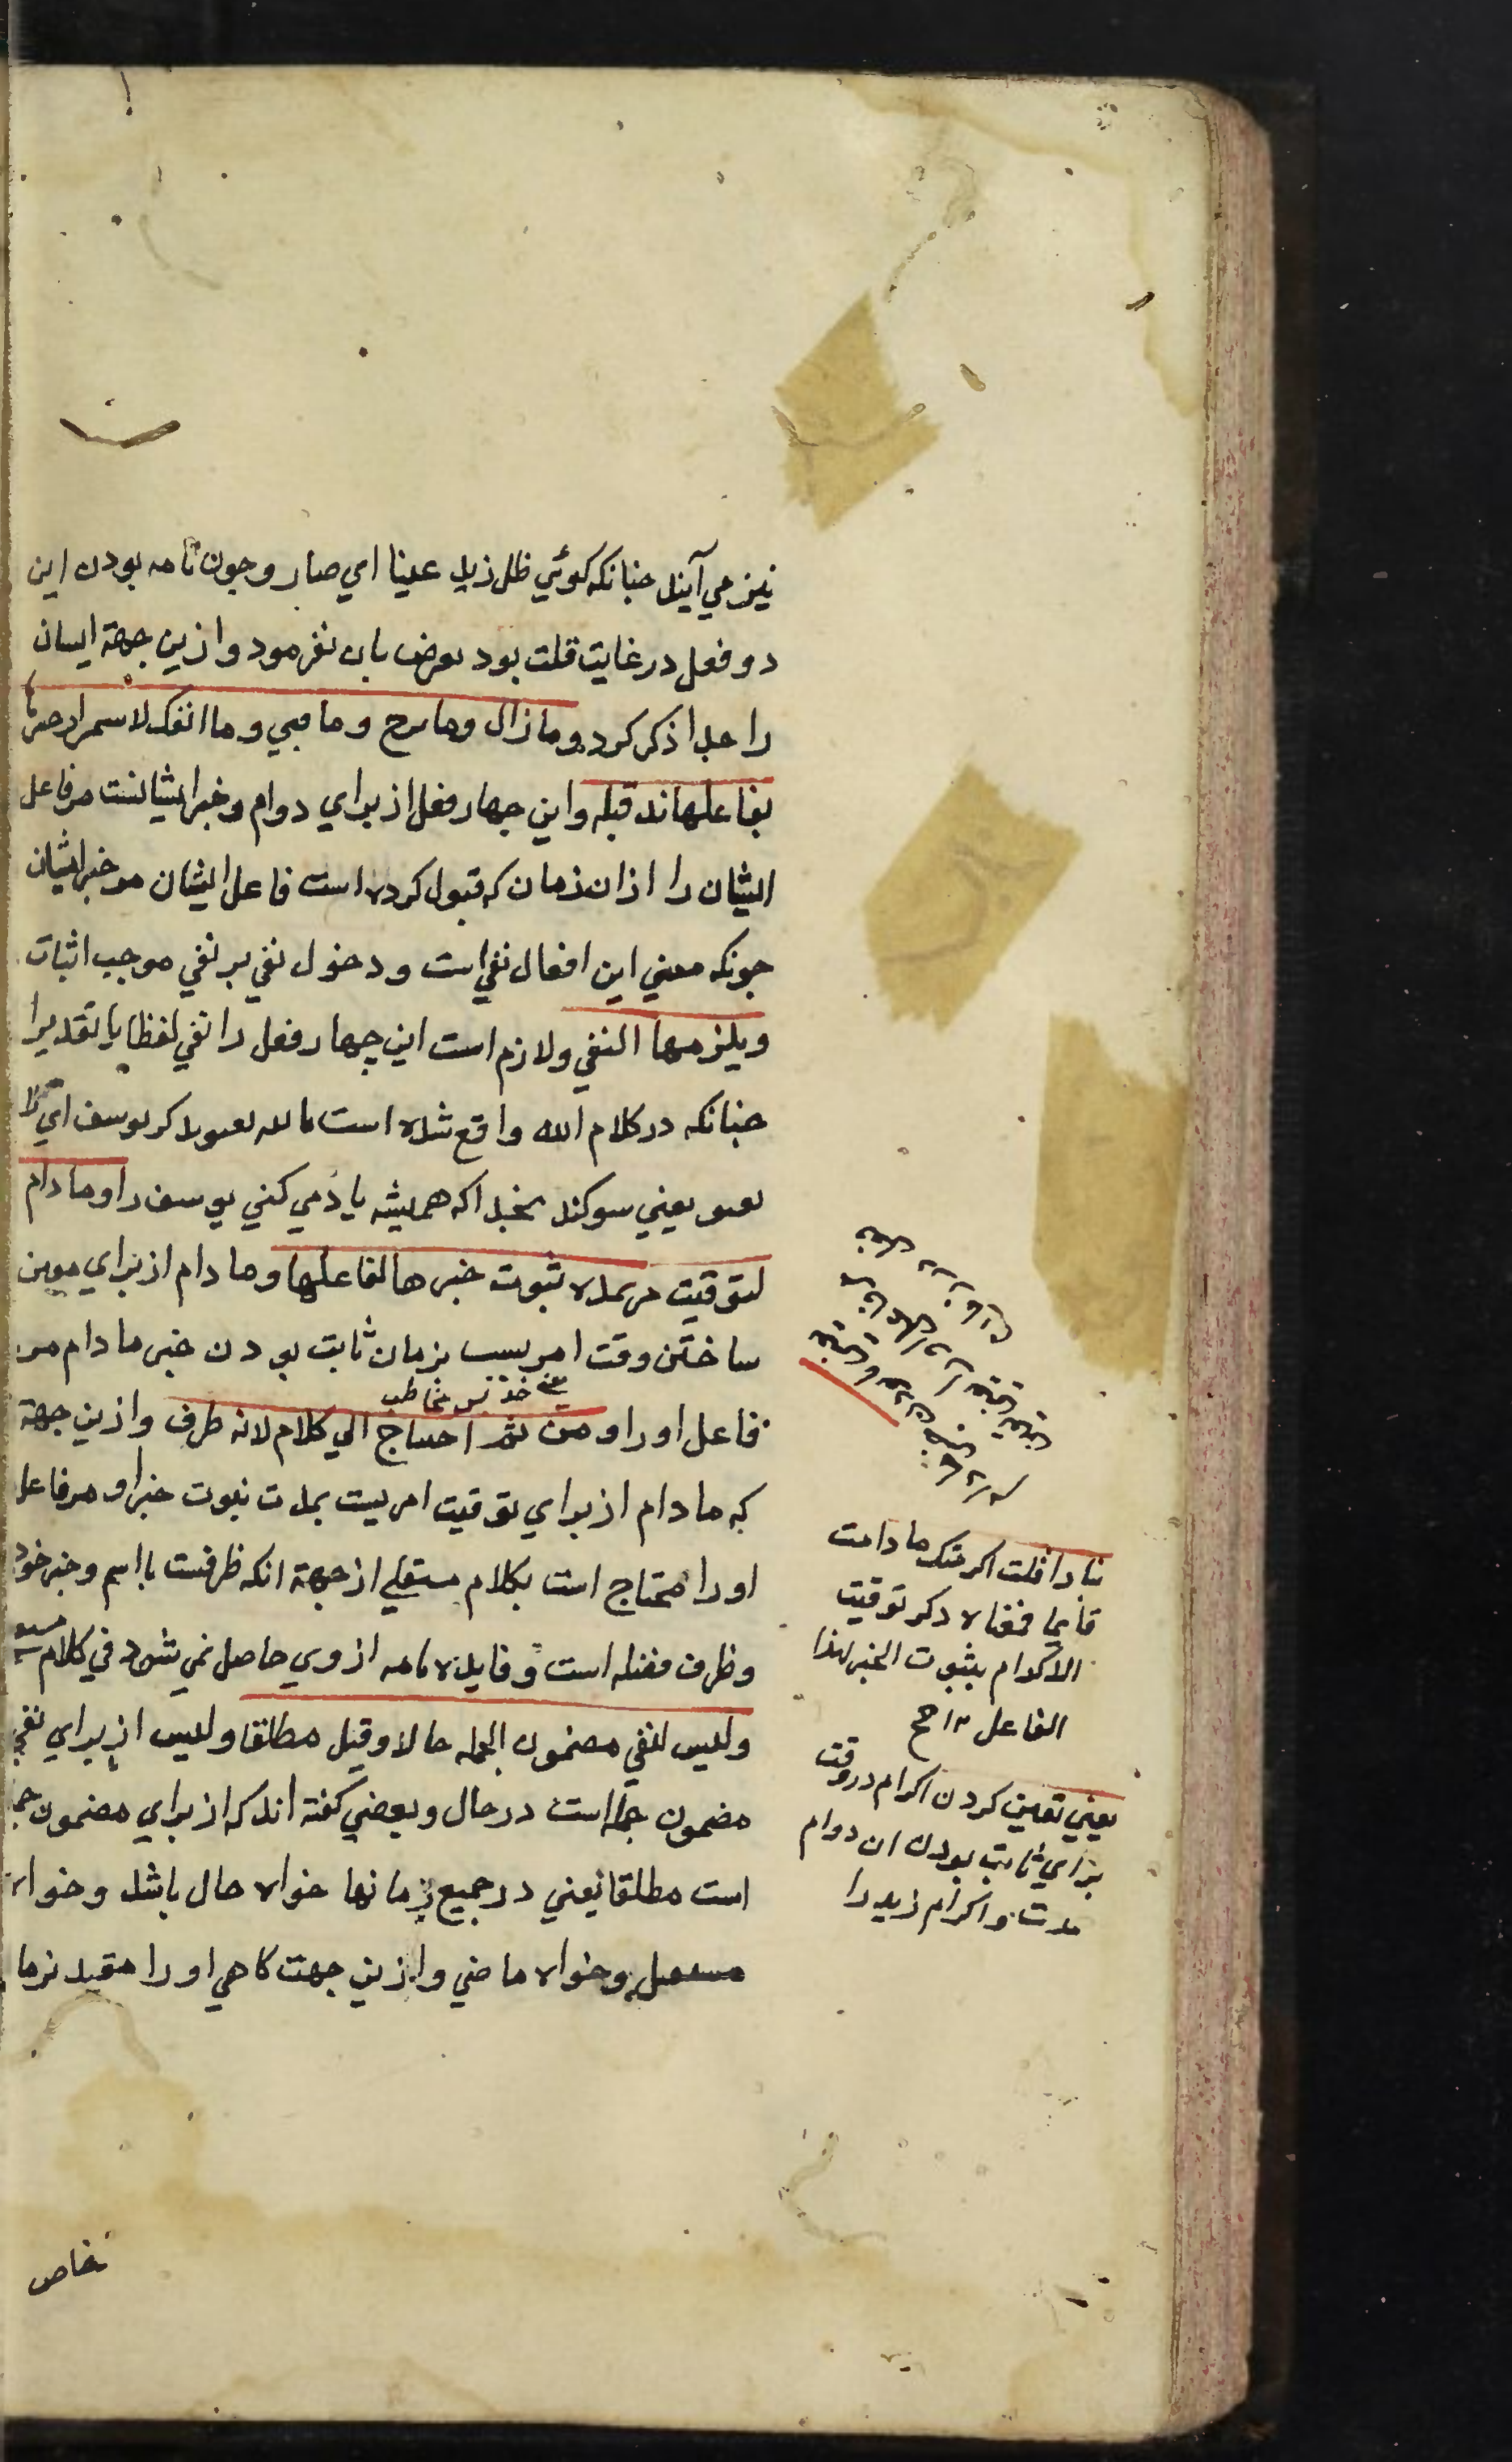 نیز می آیند چنانکه کوئي ظل زید عینا اي صار و چون تامه بودن این
دو فعل در غایت قلت بود تعرض بان نفرمود و ازین جهة ایشان
را جدا ذکر کرد و ما زال وما برح وما فتي وما انفک لاستمرار خبرها
بفاعلها مذ قبله و این چهار فعل از براي دوام و خبر ایشانست مر فاعل
ایشان را از ان زمان که قبول کرده است فاعل ایشان مر خبر ایشان
چونکه معني این افعال نفي است و دخول نفي بر نفي موجب اثبات
ویلزمها النفي و لازم است این چهار فعل را نفي لفظا یا تقدیرا
چنانکه در کلام الله واقع شده است تالله تفتو تذکر یوسف اي لا
تفتو یعني سوکند بخدا که همیشه یاد مي کني یوسف را وما دام
لتوقیت امر بمدة ثبوت خبرها لفاعلها وما دام از براي معین
ساختن وقت امریست بزمان ثابت بودن خبر ما دام مر
فاعل او را و من ثم احتاج الي کلام لانه ظرف و ازین جهة
که ما دام از براي توقیت امریست بمدت ثبوت خبر او مر فاعل
او را محتاج است بکلام مستقلي از جهة انکه ظرفست با اسم و خبر خود
و ظرف فضله است و فایده تامه از وي حاصل نمي شود في کلام
ولیس لنفي مضمون الجمله حالا وقیل مطلقا ولیس از براي نفي
مضمون جمله است در حال و بعضي کفته اند که از براي مضمون
است مطلقا یعني در جمیع زمانها خواه حال باشد و خواه
مستقبل و خواه ماضي و ازین جهت کاهي او را مقید بزما
خاص
فاذا قلت اکرمتک ما دامت
قایما فمفاده ذکر توقیت
الاکرام بثبوت الخبر لهذا
الفاعل ۱۲ ح
یعني تعین کردن اکرام در وقت
براي ثابت بودن ان دوام
مدت و اکرام زید را